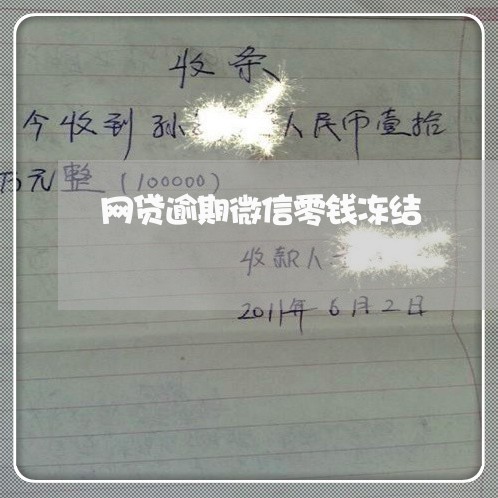 收条
今收到孙 人民币壹拾
万元整（100000）
网贷逾期微信零钱冻结
收款人
2011年6月2日